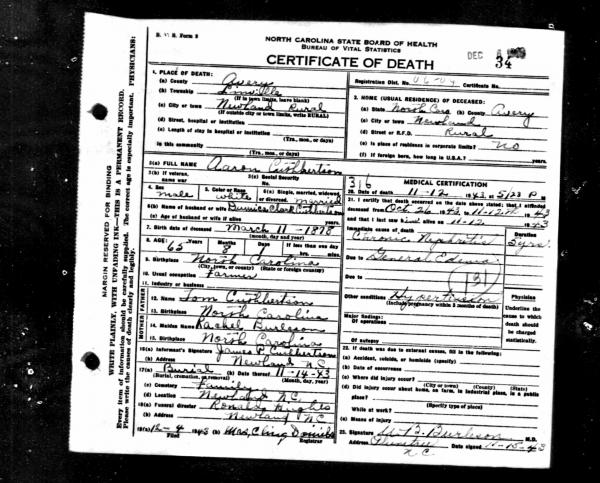 B. V. S. Form 8
NORTH CAROLINA STATE BOARD OF HEALTH
BUREAU OF VITAL STATISTICS
DEC
34
CERTIFICATE OF DEATH
MARGIN RESERVED FOR BINDING
WRITE PLAINLY, WITH UNFADING INK—THIS IS A PERMANENT RECORD.
Every item of information should be carefully supplied. The correct age is especially important. PHYSICIANS:
Please write the causes of death clearly and legibly.
1. PLACE OF DEATH:
(a) County Avery
(b) Township Linville
(If in town limits, leave blank)
(c) City or town Newland Rural
(If outside city or town limits, write RURAL)
(d) Street, hospital or institution
(e) Length of stay in hospital or institution
(Yrs., mos., or days)
In this community
(Yrs., mos., or days)
Registration Dist. No. Certificate No.
2. HOME (USUAL RESIDENCE) OF DECEASED:
(a) State North Caro (b) County Avery
(c) City or town Newland
(d) Street or R.F.D. Rural
(e) Is place of residence in corporate limits? No
(f) If foreign born, how long in U.S.A.?
3(a) FULL NAME Aaron Cuthbertson
3(b) If veteran, name war
3(c) Social Security No.
4. Sex male
5. Color or Race white
6(a) Single, married, widowed, or divorced. married
6(b) Name of husband or wife Clark Cuthbertson
6(c) Age of husband or wife if alive years
7. Birth date of deceased March 11 - 1878
(month, day and year)
8. AGE: 65 Years Months 8 Days If less than one day
hrs. min.
9. Birthplace North Carolina
(City, town, or county) (State or foreign country)
10. Usual occupation Farmer
11. Industry or business
FATHER
12. Name Tom Cuthbertson
13. Birthplace North Carolina
MOTHER
14. Maiden Name Rachel Burleson
15. Birthplace North Carolina
16(a) Informant's Signature James P. Cuthbertson
(b) Address Newland N.C.
17(a) Burial (b) Date thereof 11-14-43
(Burial, cremation, or removal) (Month, day, year)
(c) Cemetery Family
(d) Location Newland N.C.
18(a) Funeral director Hughes
(b) Address Newland N.C.
19(a) 12-4 1943 (b) Mrs. Daniels
Filed Registrar
316
MEDICAL CERTIFICATION
20. Date of death 11-12 1943
21. I certify that death occurred on the date above stated; that I attended
deceased from Oct 26 1943, 11-12th, 1943
and that I last saw alive on 11-12 1943
Immediate cause of death
Duration
Chronic Nephritis
Due to General Edema
Due to
131
Other conditions Hypertension
(Include pregnancy within 3 months of death)
Major findings:
Of operations
Physician
Underline the cause to which death should be charged statistically.
22. If death was due to external causes, fill in the following:
(a) Accident, suicide, or homicide (specify)
(b) Date of occurrence
(c) Where did injury occur?
(City or town) (County) (State)
(d) Did injury occur about home, on farm, in industrial place, in a public
place?
(Specify type of place)
While at work?
(e) Means of injury
23. Signature W. B. Burleson M.D.
Address N.C. Date signed 11-15-43